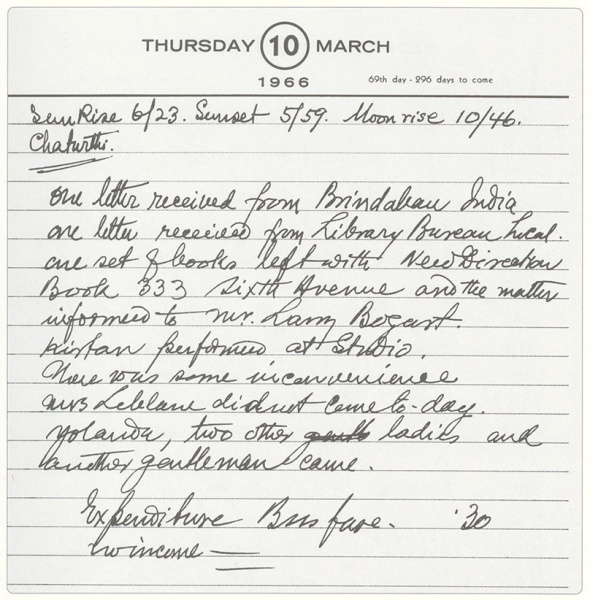 THURSDAY 10 MARCH
1966 69th day - 296 days to come
Sun Rise 6/23. Sunset 5/59. Moon rise 10/46.
Chaturthi.
one letter received from Brindaban India
one letter received from Library Bureau Local.
one set of books left with New Direction
Book 333 Sixth Avenue and the matter
informed to Mr. Larry Bogart.
Kirtan performed at Studio.
There was some inconvenience
Mrs Leblanc did not come to-day.
Yolanda, two other ladies and
another gentleman came.
Expenditure Bus fare. '30
no income —